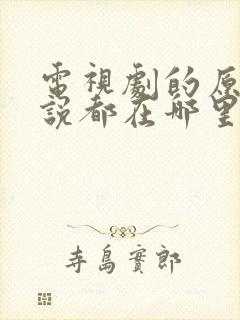 電視劇的原
說都在哪里
寺島實郎